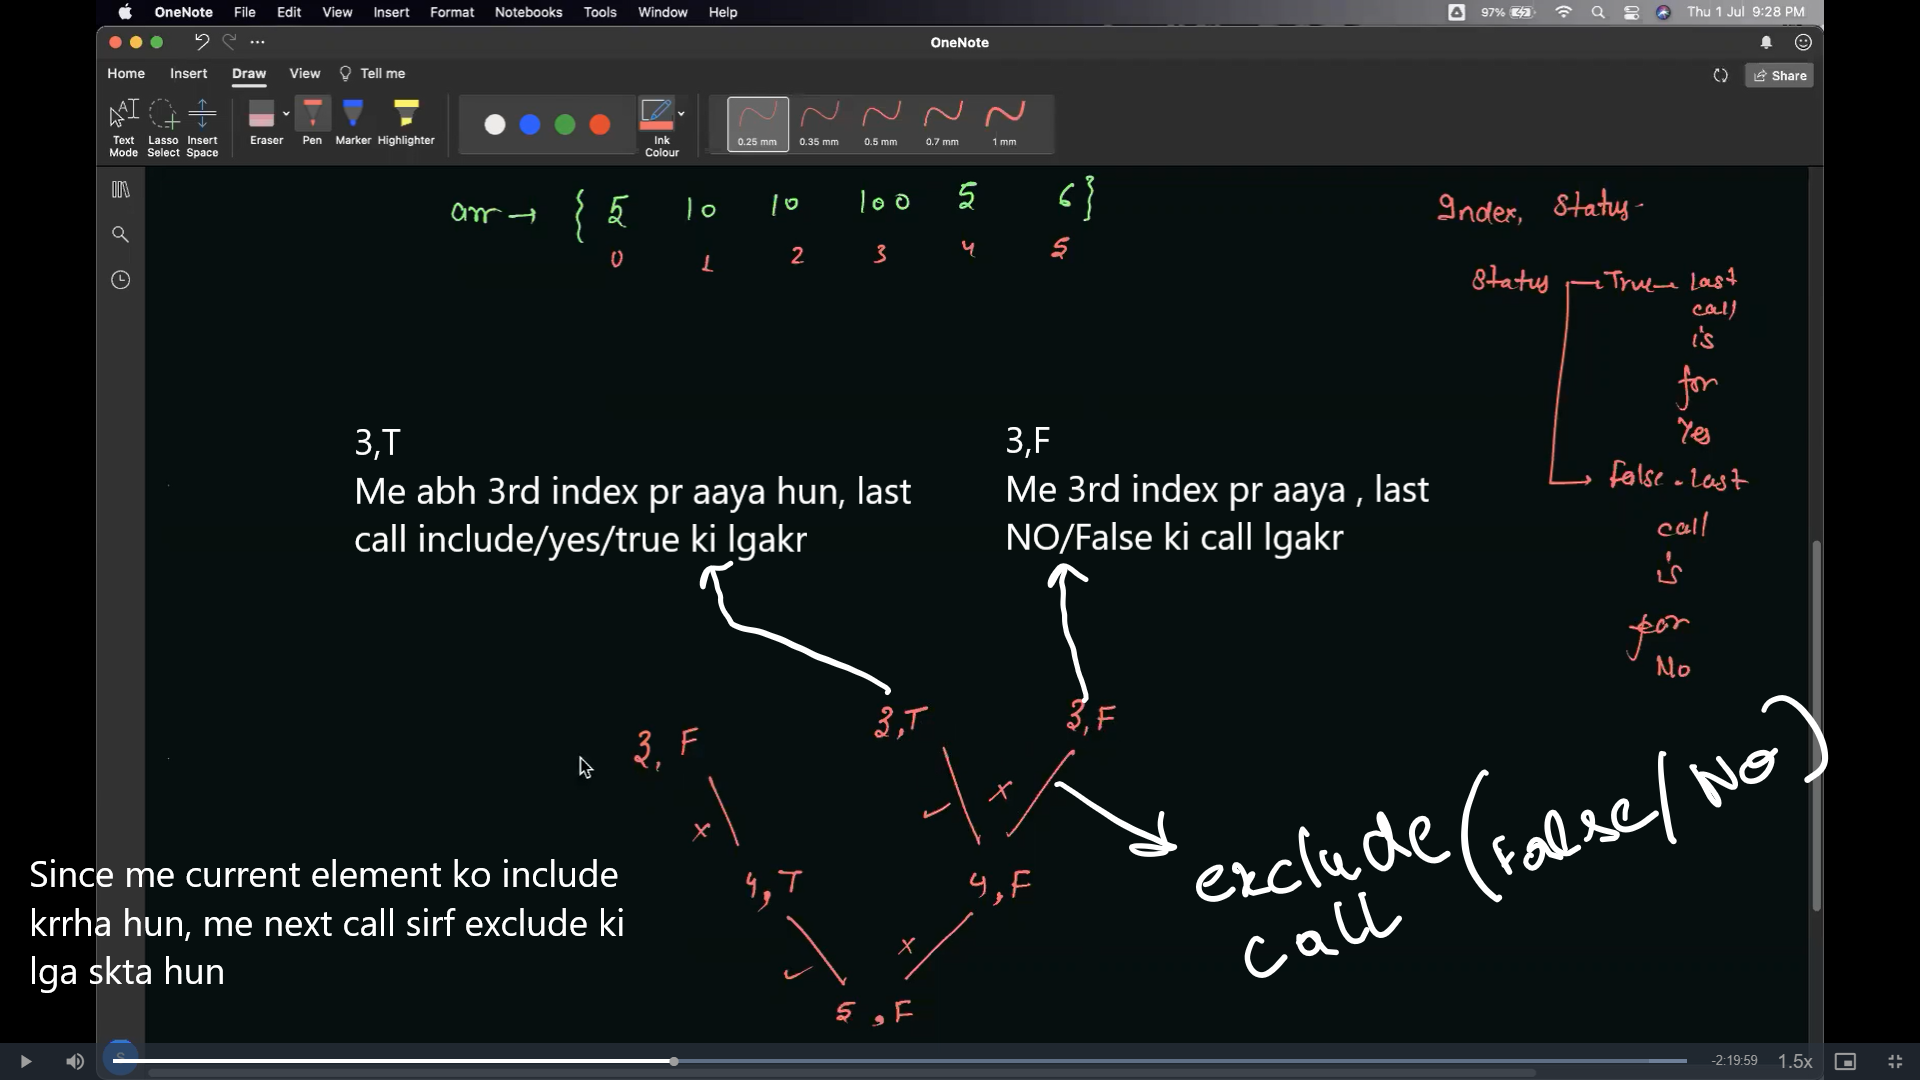 OneNote File Edit View Insert Format Notebooks Tools Window Help 97% Thu 1 Jul 9:28 PM
OneNote
Home Insert Draw View Tell me Share
Text Mode Lasso Select Insert Space Eraser Pen Marker Highlighter Ink Colour 0.25 mm 0.35 mm 0.5 mm 0.7 mm 1 mm
arr → { 5 10 10 100 5 6 }
0 1 2 3 4 5
Index, Status
Status → True → Last
call
is
for
Yes
→ False - Last
call
is
for
No
3,T
Me abh 3rd index pr aaya hun, last
call include/yes/true ki lgakr
3,F
Me 3rd index pr aaya , last
NO/False ki call lgakr
3, F 3,T 3,F
x ✓ x
4,T 4,F
✓ x
5,F
exclude (False/No)
call
Since me current element ko include
krrha hun, me next call sirf exclude ki
lga skta hun
-2:19:59 1.5x